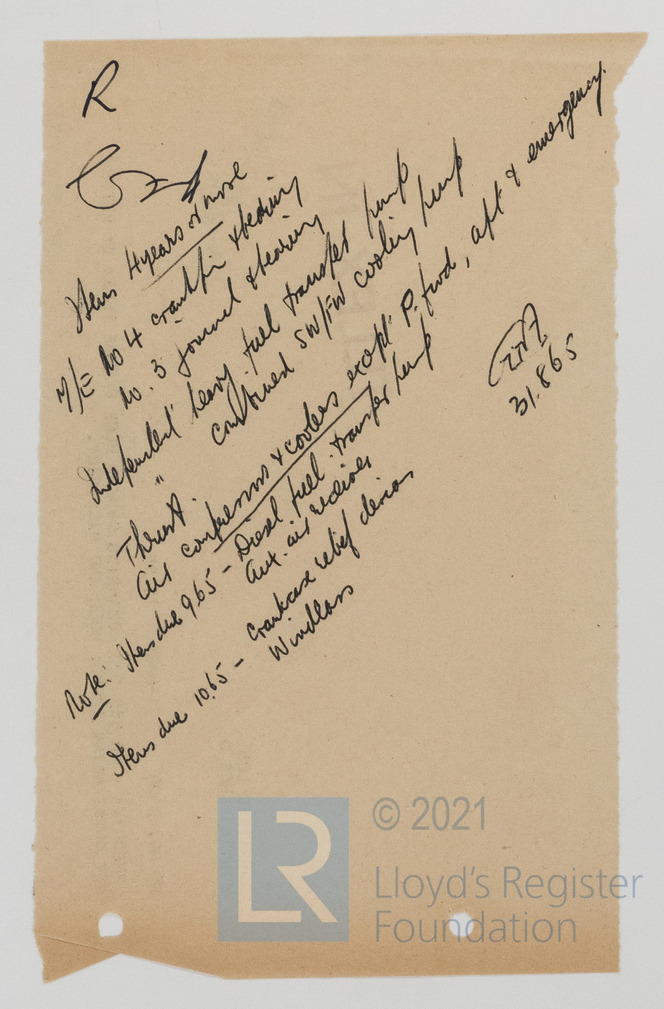 R
Items 4 years or more
M/E No 4 crankpin & bearing
No. 3 journal & bearing
Independent heavy fuel transfer pump
" combined SW/FW cooling pump
Thrust.
Air compressors & coolers except P. fwd, aft & emergency.
Note: Items due 9.65 - Diesel fuel transfer pump
Aux. air receiver
Items due 10.65 - Crankcase relief devices
Windlass
31.8.65
LR
© 2021
Lloyd's Register
Foundation